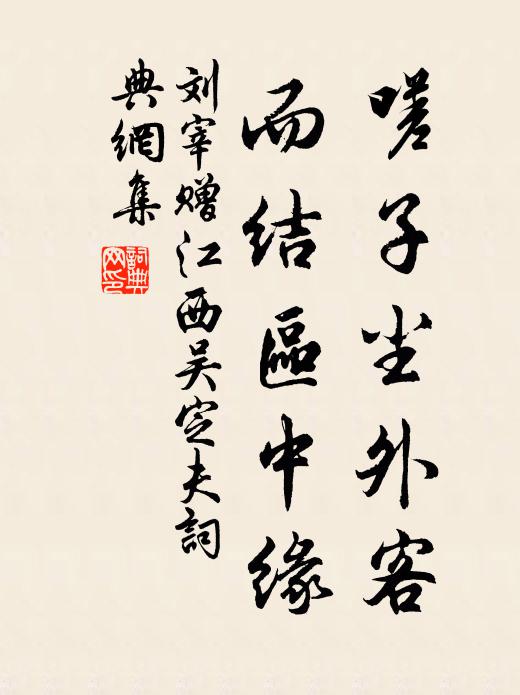 嗟子尘外客
而结區中缘
刘宰赠江西吴定夫詞
典網集
詞典
网印